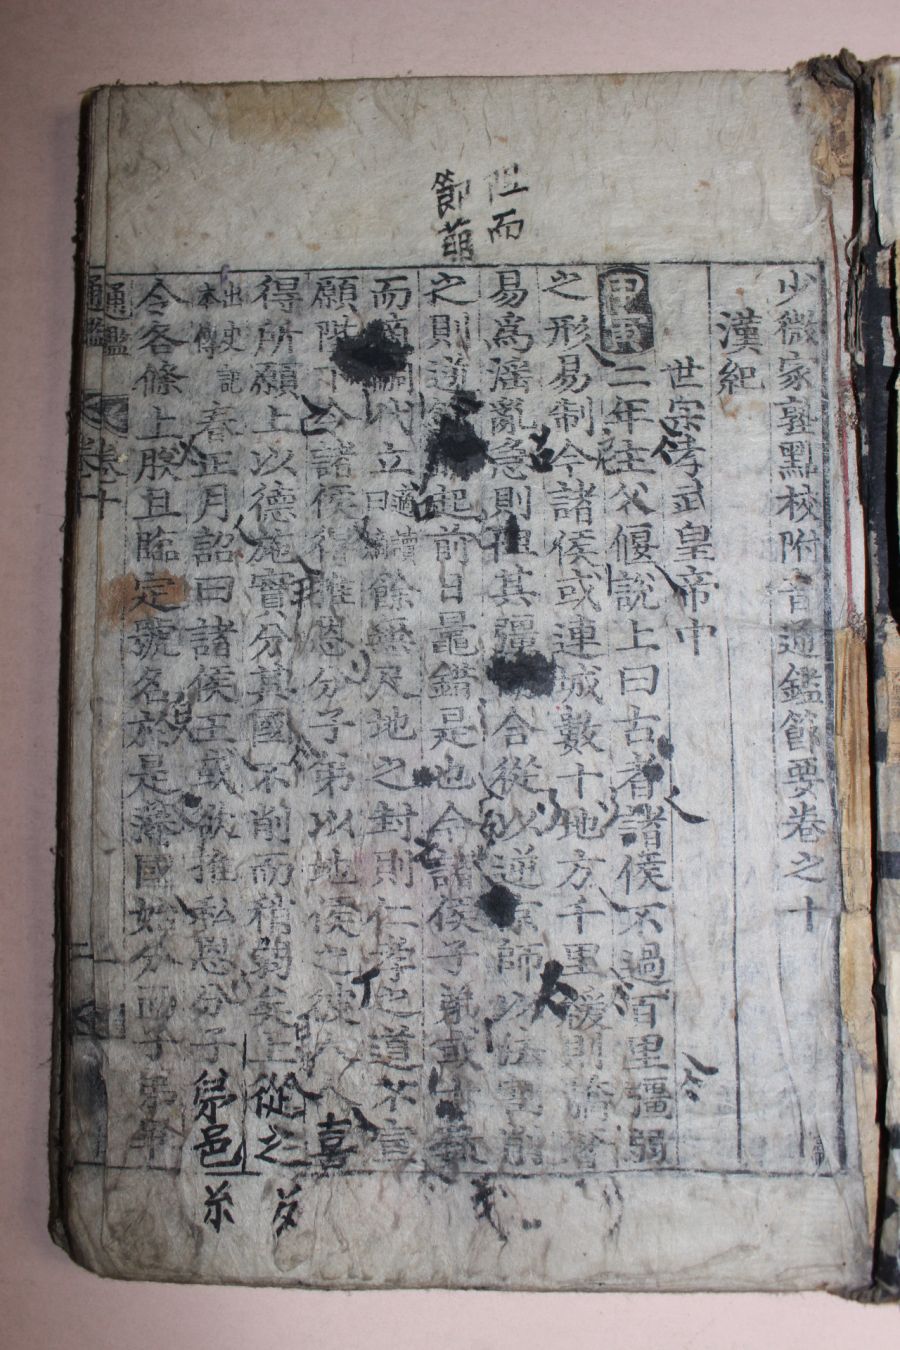 少微家塾點校附音通鑑節要卷之十
漢紀
世宗孝武皇帝中
甲寅二年主父偃說上曰古者諸侯不過百里彊弱
之形易制今諸侯或連城數十地方千里緩則驕奢
易爲淫亂急則其彊合從以逆京師以法割削
之則逆起前日鼂錯是也今諸侯子弟或十數
而適嗣代立餘無尺地之封則仁孝之道不宣
願陛下令諸侯得推恩分子弟以地侯之彼人人喜
得所願上以德施實分其國不削而稍弱矣上從之
出史記本傳春正月詔曰諸侯王或欲推私恩分子弟邑
令各條上朕且臨定號名於是藩國始分而子弟畢
通鑑
卷十
陛而
節萌